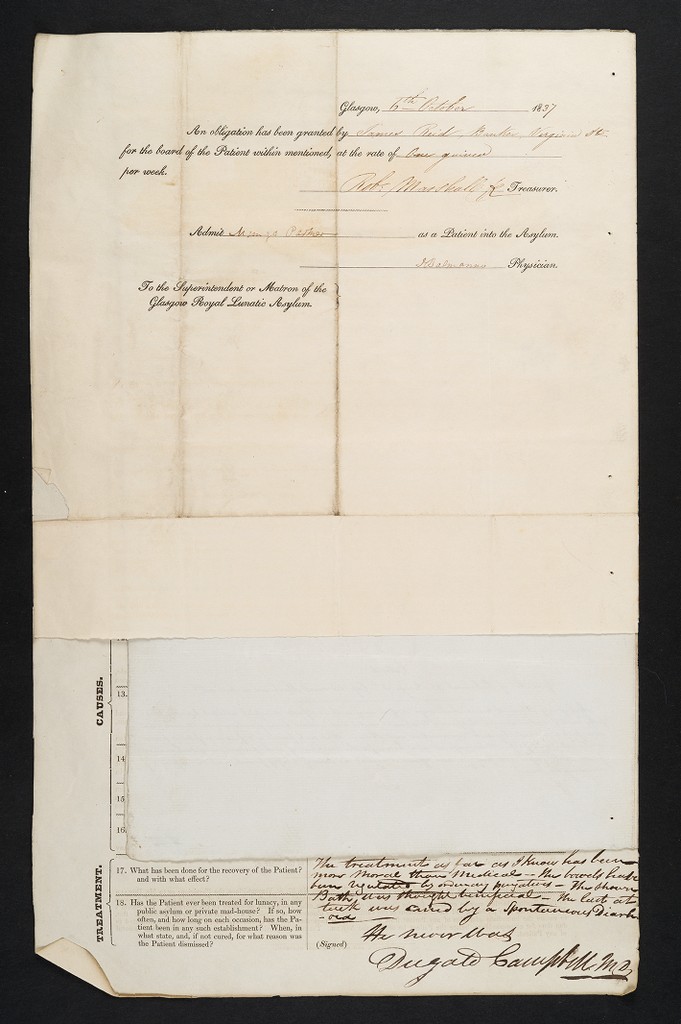 Glasgow, 6th October 1837
An obligation has been granted by James Reid Banker Virginia St.
for the board of the Patient within mentioned, at the rate of One guinea
per week.
Robt Marshall Treasurer.
Admit as a Patient into the Asylum.
Physician.
To the Superintendent or Matron of the
Glasgow Royal Lunatic Asylum.
CAUSES.
13.
14
15
16
TREATMENT.
17. What has been done for the recovery of the Patient?
and with what effect?
The treatment as far as I know has been
more Moral than Medical – the bowels have
been regulated by ordinary purgatives – The shower
Bath was thought beneficial – the last at
tack was cured by a Spontaneous Diarh
oea
18. Has the Patient ever been treated for lunacy, in any
public asylum or private mad-house? If so, how
often, and how long on each occasion, has the Pa-
tient been in any such establishment? When, in
what state, and, if not cured, for what reason was
the Patient dismissed?
He never was
(Signed)
Dugald Campbell M.D.